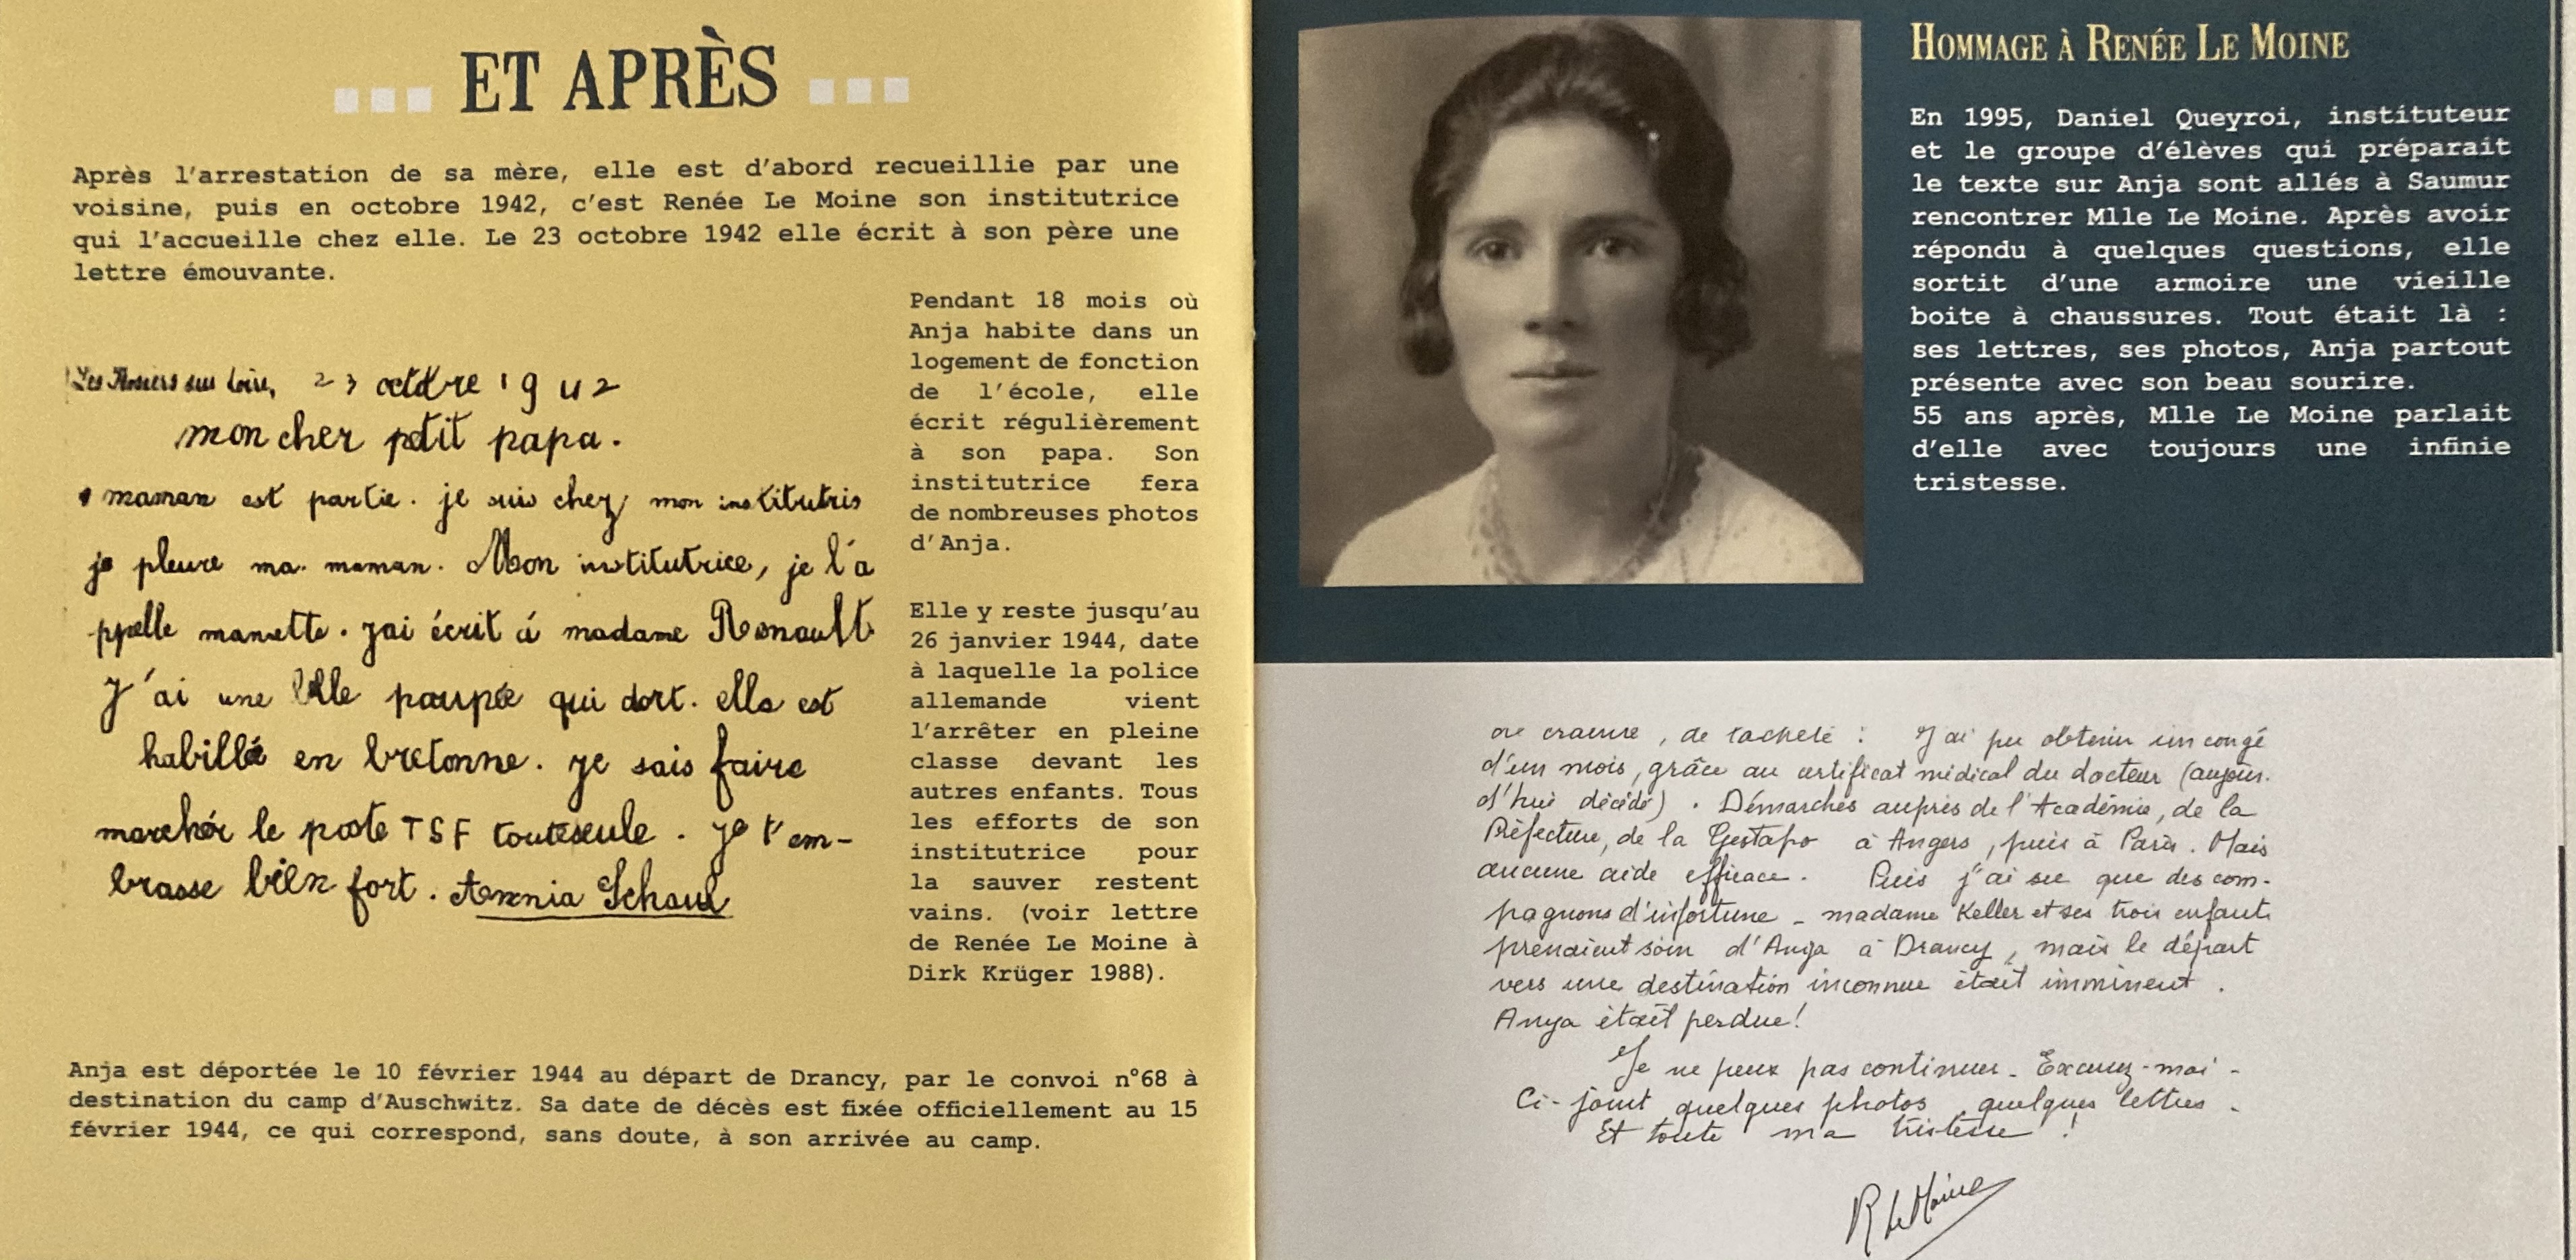 ET APRÈS
Après l'arrestation de sa mère, elle est d'abord recueillie par une
voisine, puis en octobre 1942, c'est Renée Le Moine son institutrice
qui l'accueille chez elle. Le 23 octobre 1942 elle écrit à son père une
lettre émouvante.
Les Rosiers sur Loire, 23 octobre 1942
mon cher petit papa.
maman est partie. je suis chez mon institutris
je pleure ma maman. Mon institutrice, je l'a
ppelle manette. jai écrit à madame Renault
J'ai une belle poupée qui dort. elle est
habillée en bretonne. je sais faire
marcher le poste TSF touteseule. je t'em-
brasse bien fort. Annia Schaul
Pendant 18 mois où
Anja habite dans un
logement de fonction
de l'école, elle
écrit régulièrement
à son papa. Son
institutrice fera
de nombreuses photos
d'Anja.
Elle y reste jusqu'au
26 janvier 1944, date
à laquelle la police
allemande vient
l'arrêter en pleine
classe devant les
autres enfants. Tous
les efforts de son
institutrice pour
la sauver restent
vains. (voir lettre
de Renée Le Moine à
Dirk Krüger 1988).
Anja est déportée le 10 février 1944 au départ de Drancy, par le convoi n°68 à
destination du camp d'Auschwitz. Sa date de décès est fixée officiellement au 15
février 1944, ce qui correspond, sans doute, à son arrivée au camp.
HOMMAGE À RENÉE LE MOINE
En 1995, Daniel Queyroi, instituteur
et le groupe d'élèves qui préparait
le texte sur Anja sont allés à Saumur
rencontrer Mlle Le Moine. Après avoir
répondu à quelques questions, elle
sortit d'une armoire une vieille
boite à chaussures. Tout était là :
ses lettres, ses photos, Anja partout
présente avec son beau sourire.
55 ans après, Mlle Le Moine parlait
d'elle avec toujours une infinie
tristesse.
de lacheté : J'ai pu obtenir un congé
d'un mois, grâce au certificat médical du docteur (aujour-
d'hui décédé). Démarches auprès de l'Académie, de la
Préfecture, de la Gestapo à Angers, puis à Paris. Mais
aucune aide efficace. Puis j'ai su que des com-
pagnons d'infortune - madame Keller et ses trois enfants
prenaient soin d'Anja à Drancy, mais le départ
vers une destination inconnue était imminent.
Anja était perdue!
Je ne peux pas continuer - Excusez-moi -
Ci-joint quelques photos, quelques lettres -
Et toute ma tristesse !
R Le Moine